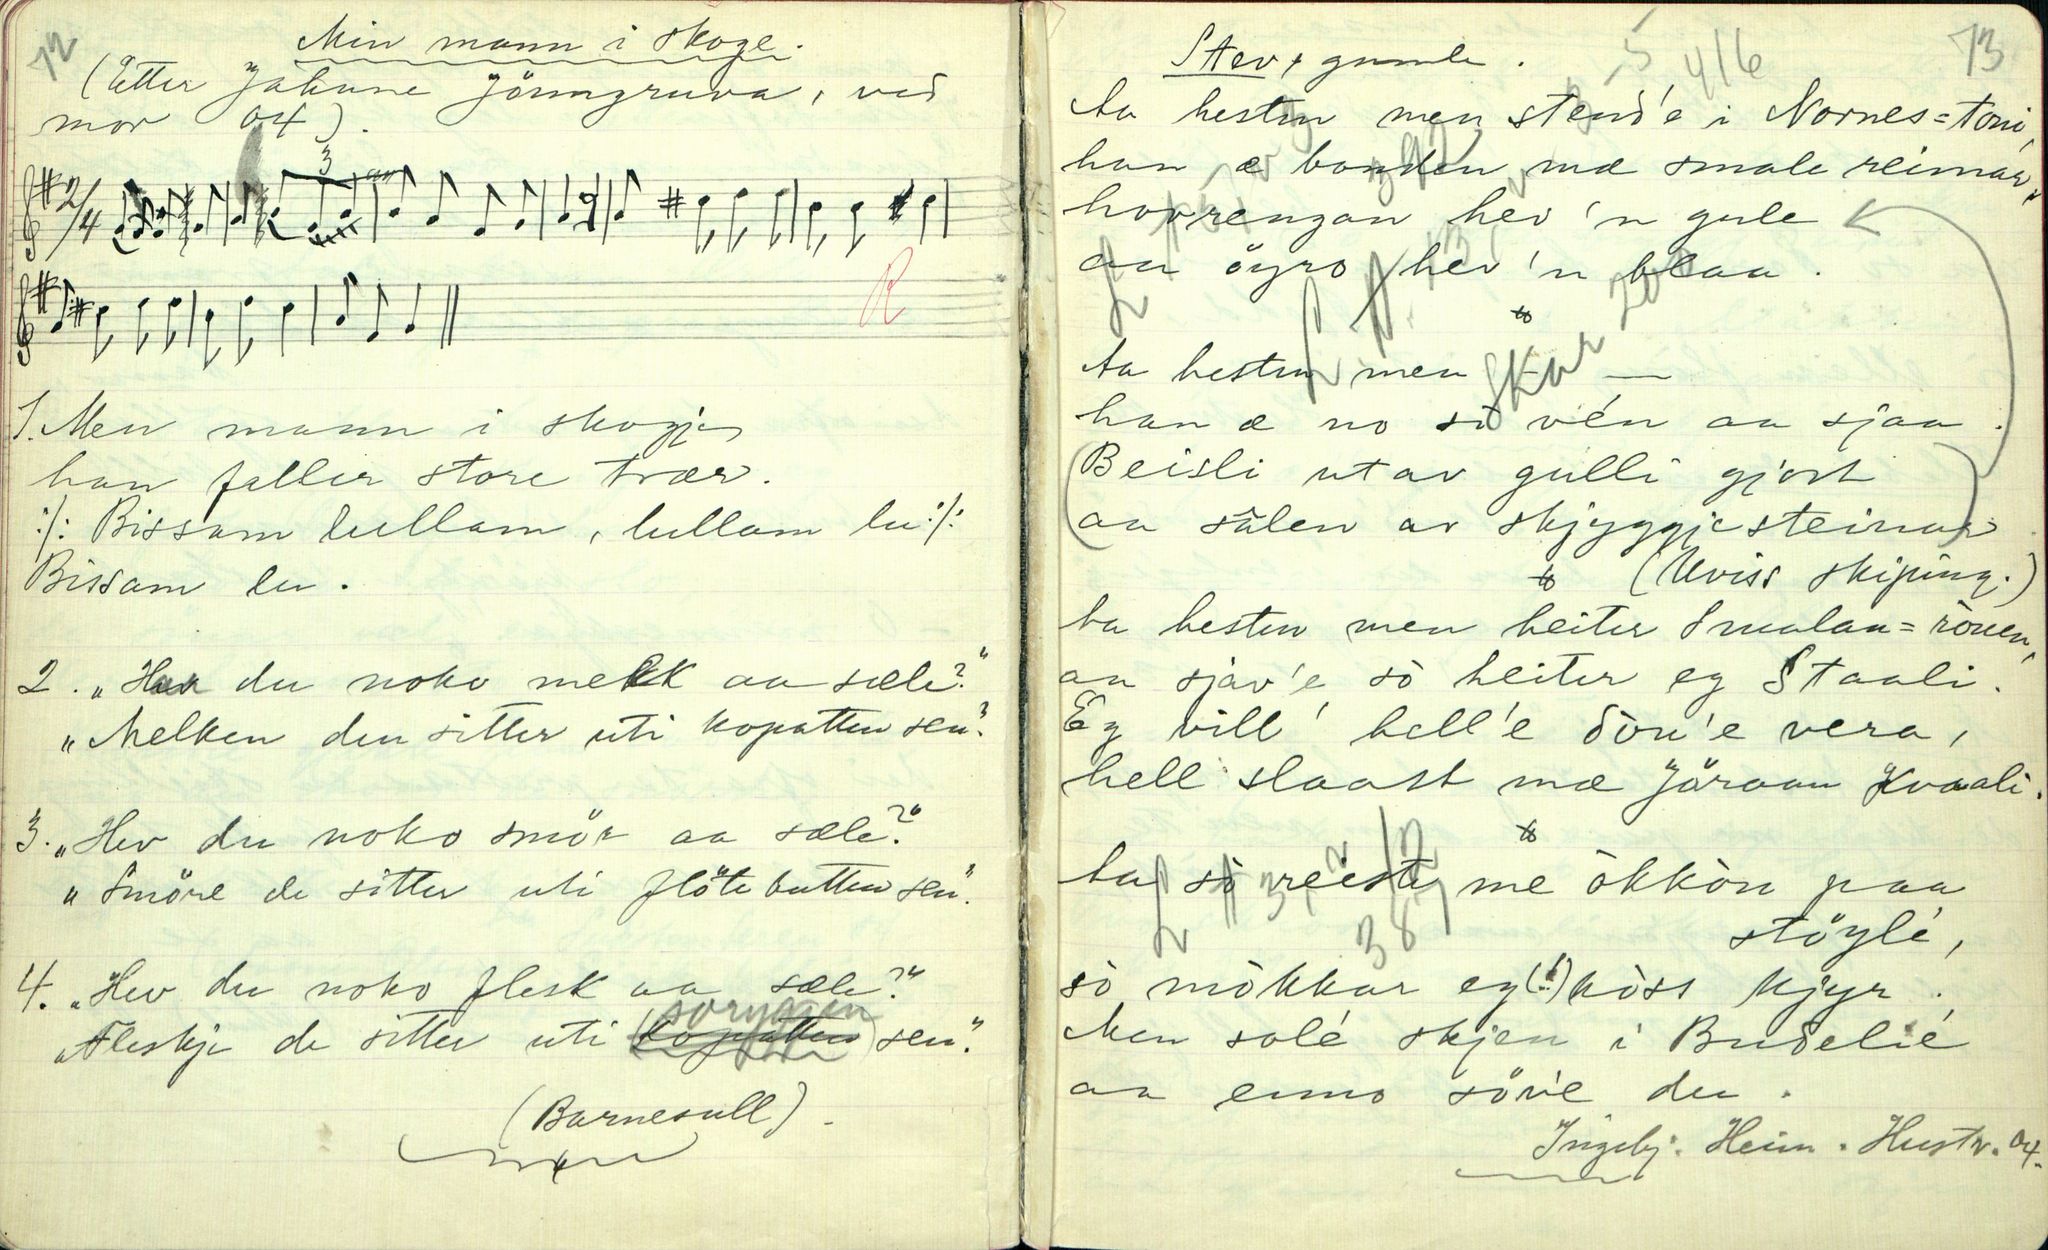 72
Min mann i skoge.
(Etter Jakune Jönngruva, ved
mor 04).
3
2/4
R
1. Men mann i skogje
han feller store trær.
:/: Bissam lullam, lullam lu :/:
Bissam lu.
2. "Hev du noko melk aa sæle?"
"Melken den sitter uti kopatten sen."
3. "Hev du noko smör aa sæle?"
"Smöre de sitter uti flötebutten sen."
4. "Hev du noko flesk aa sæle?"
soryggen
"Fleskje de sitter uti (kopatten) sen."
(Barnesull).
73
Stev, gamle.
416
Aa hesten men stend'e i Nornes=toni,
han æ bonden mæ smale reimar,
hovrengan hev 'n gule
aa öyro hev 'n blaa.
Skar 200
Aa hesten men — —
han æ no so vén aa sjaa.
(Beisli utav gulli gjort
aa sålen av skjyggjesteinar)
(Uviss skiping.)
Aa hesten men heiter Smalan=rönen,
aa sjav'e sò heiter eg Staali.
Eg vill' hell'e dön'e vera,
hell slaast mæ Jöraan Kvaali.
387
Aa sò reiste me òkkòn paa
støylé,
sò mòkkar eg (!) kòss kjyr.
Men solé skjen i Budelié
aa enno söv'e du.
Ingebj. Heim. Hustv. 04.